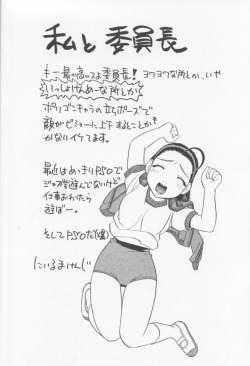 私と委員長
もー最高っスよ委員長！ ヨワヨワな所とか、いや
いっしょけんめーな所とか
ポリゴンキャラの立ちポーズで
顔がビミョーに上下することとか
かないイケてます。
最近はめっきりPSOで
ジャス学遊んでないけど
仕事おわったら
遊ぼー。
そしてPSOだ(爆)
にいるまけんじ